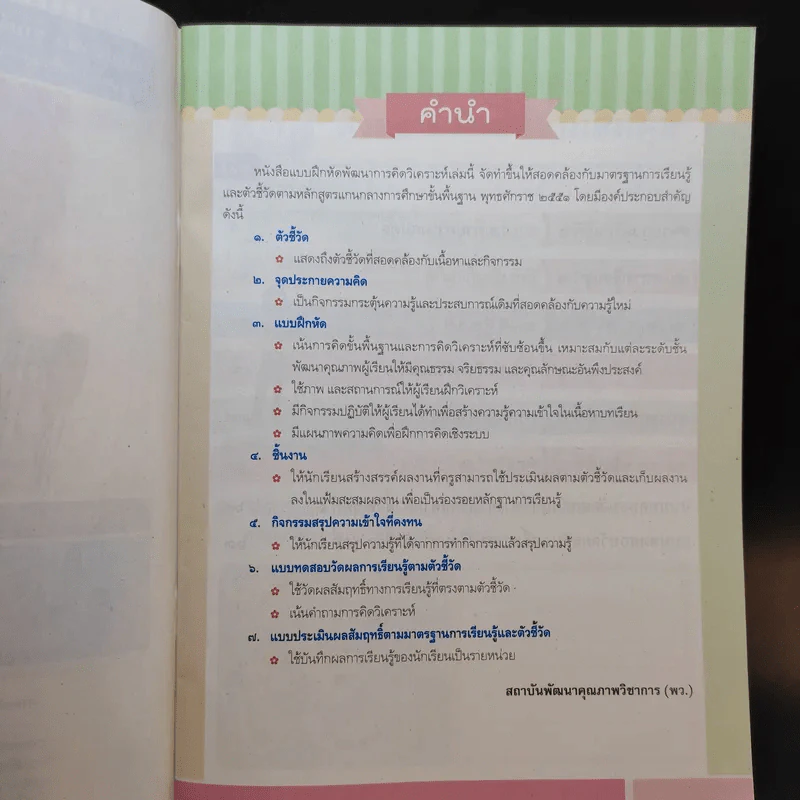 คำนำ
หนังสือแบบฝึกหัดพัฒนาการคิดวิเคราะห์เล่มนี้ จัดทำขึ้นให้สอดคล้องกับมาตรฐานการเรียนรู้
และตัวชี้วัดตามหลักสูตรแกนกลางการศึกษาขั้นพื้นฐาน พุทธศักราช ๒๕๕๑ โดยมีองค์ประกอบสำคัญ
ดังนี้
๑. ตัวชี้วัด
แสดงถึงตัวชี้วัดที่สอดคล้องกับเนื้อหาและกิจกรรม
๒. จุดประกายความคิด
เป็นกิจกรรมกระตุ้นความรู้และประสบการณ์เดิมที่สอดคล้องกับความรู้ใหม่
๓. แบบฝึกหัด
เน้นการคิดขั้นพื้นฐานและการคิดวิเคราะห์ที่ซับซ้อนขึ้น เหมาะสมกับแต่ละระดับชั้น
พัฒนาคุณภาพผู้เรียนให้มีคุณธรรม จริยธรรม และคุณลักษณะอันพึงประสงค์
ใช้ภาพ และสถานการณ์ให้ผู้เรียนฝึกวิเคราะห์
มีกิจกรรมปฏิบัติให้ผู้เรียนได้ทำเพื่อสร้างความรู้ความเข้าใจในเนื้อหาบทเรียน
มีแผนภาพความคิดเพื่อฝึกการคิดเชิงระบบ
๔. ชิ้นงาน
ให้นักเรียนสร้างสรรค์ผลงานที่ครูสามารถใช้ประเมินผลตามตัวชี้วัดและเก็บผลงาน
ลงในแฟ้มสะสมผลงาน เพื่อเป็นร่องรอยหลักฐานการเรียนรู้
๕. กิจกรรมสรุปความเข้าใจที่คงทน
ให้นักเรียนสรุปความรู้ที่ได้จากการทำกิจกรรมแล้วสรุปความรู้
๖. แบบทดสอบวัดผลการเรียนรู้ตามตัวชี้วัด
ใช้วัดผลสัมฤทธิ์ทางการเรียนรู้ที่ตรงตามตัวชี้วัด
เน้นคำถามการคิดวิเคราะห์
๗. แบบประเมินผลสัมฤทธิ์ตามมาตรฐานการเรียนรู้และตัวชี้วัด
ใช้บันทึกผลการเรียนรู้ของนักเรียนเป็นรายหน่วย
สถาบันพัฒนาคุณภาพวิชาการ (พว.)